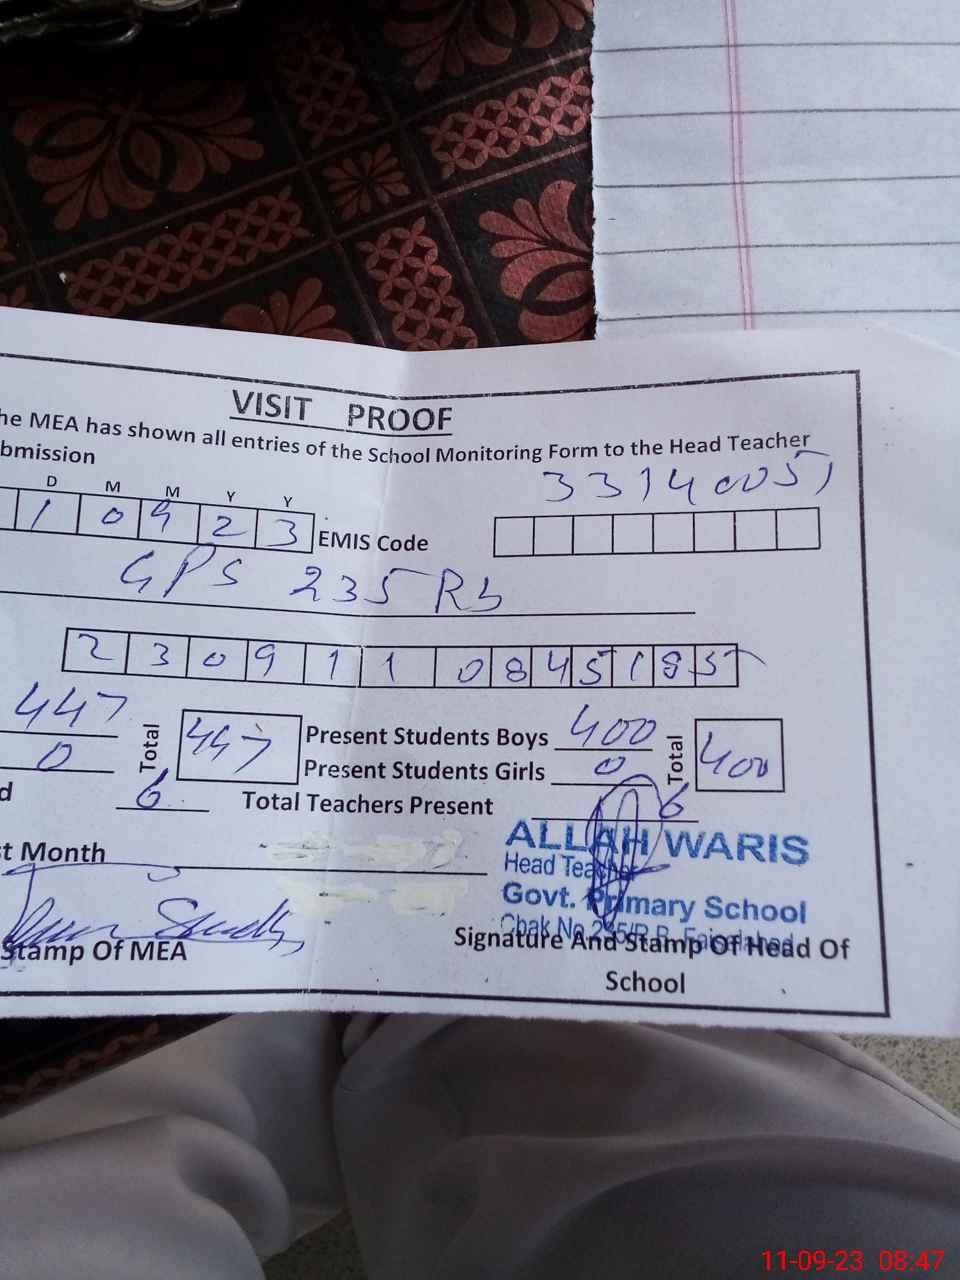 VISIT PROOF
he MEA has shown all entries of the School Monitoring Form to the Head Teacher
bmission
D M M Y Y
1 0 9 2 3 EMIS Code 33140051
GPS 235 RB
2 3 0 9 1 1 0 8 4 5 1 8 5
447 Total 447 Present Students Boys 400 Total 400
0 Present Students Girls 0
d 6 Total Teachers Present 6
st Month
ALLAH WARIS
Head Teacher
Govt. Primary School
Chak No 235/R.B. Faisalabad
Stamp Of MEA Signature And Stamp Of Head Of
School
11-09-23 08:47